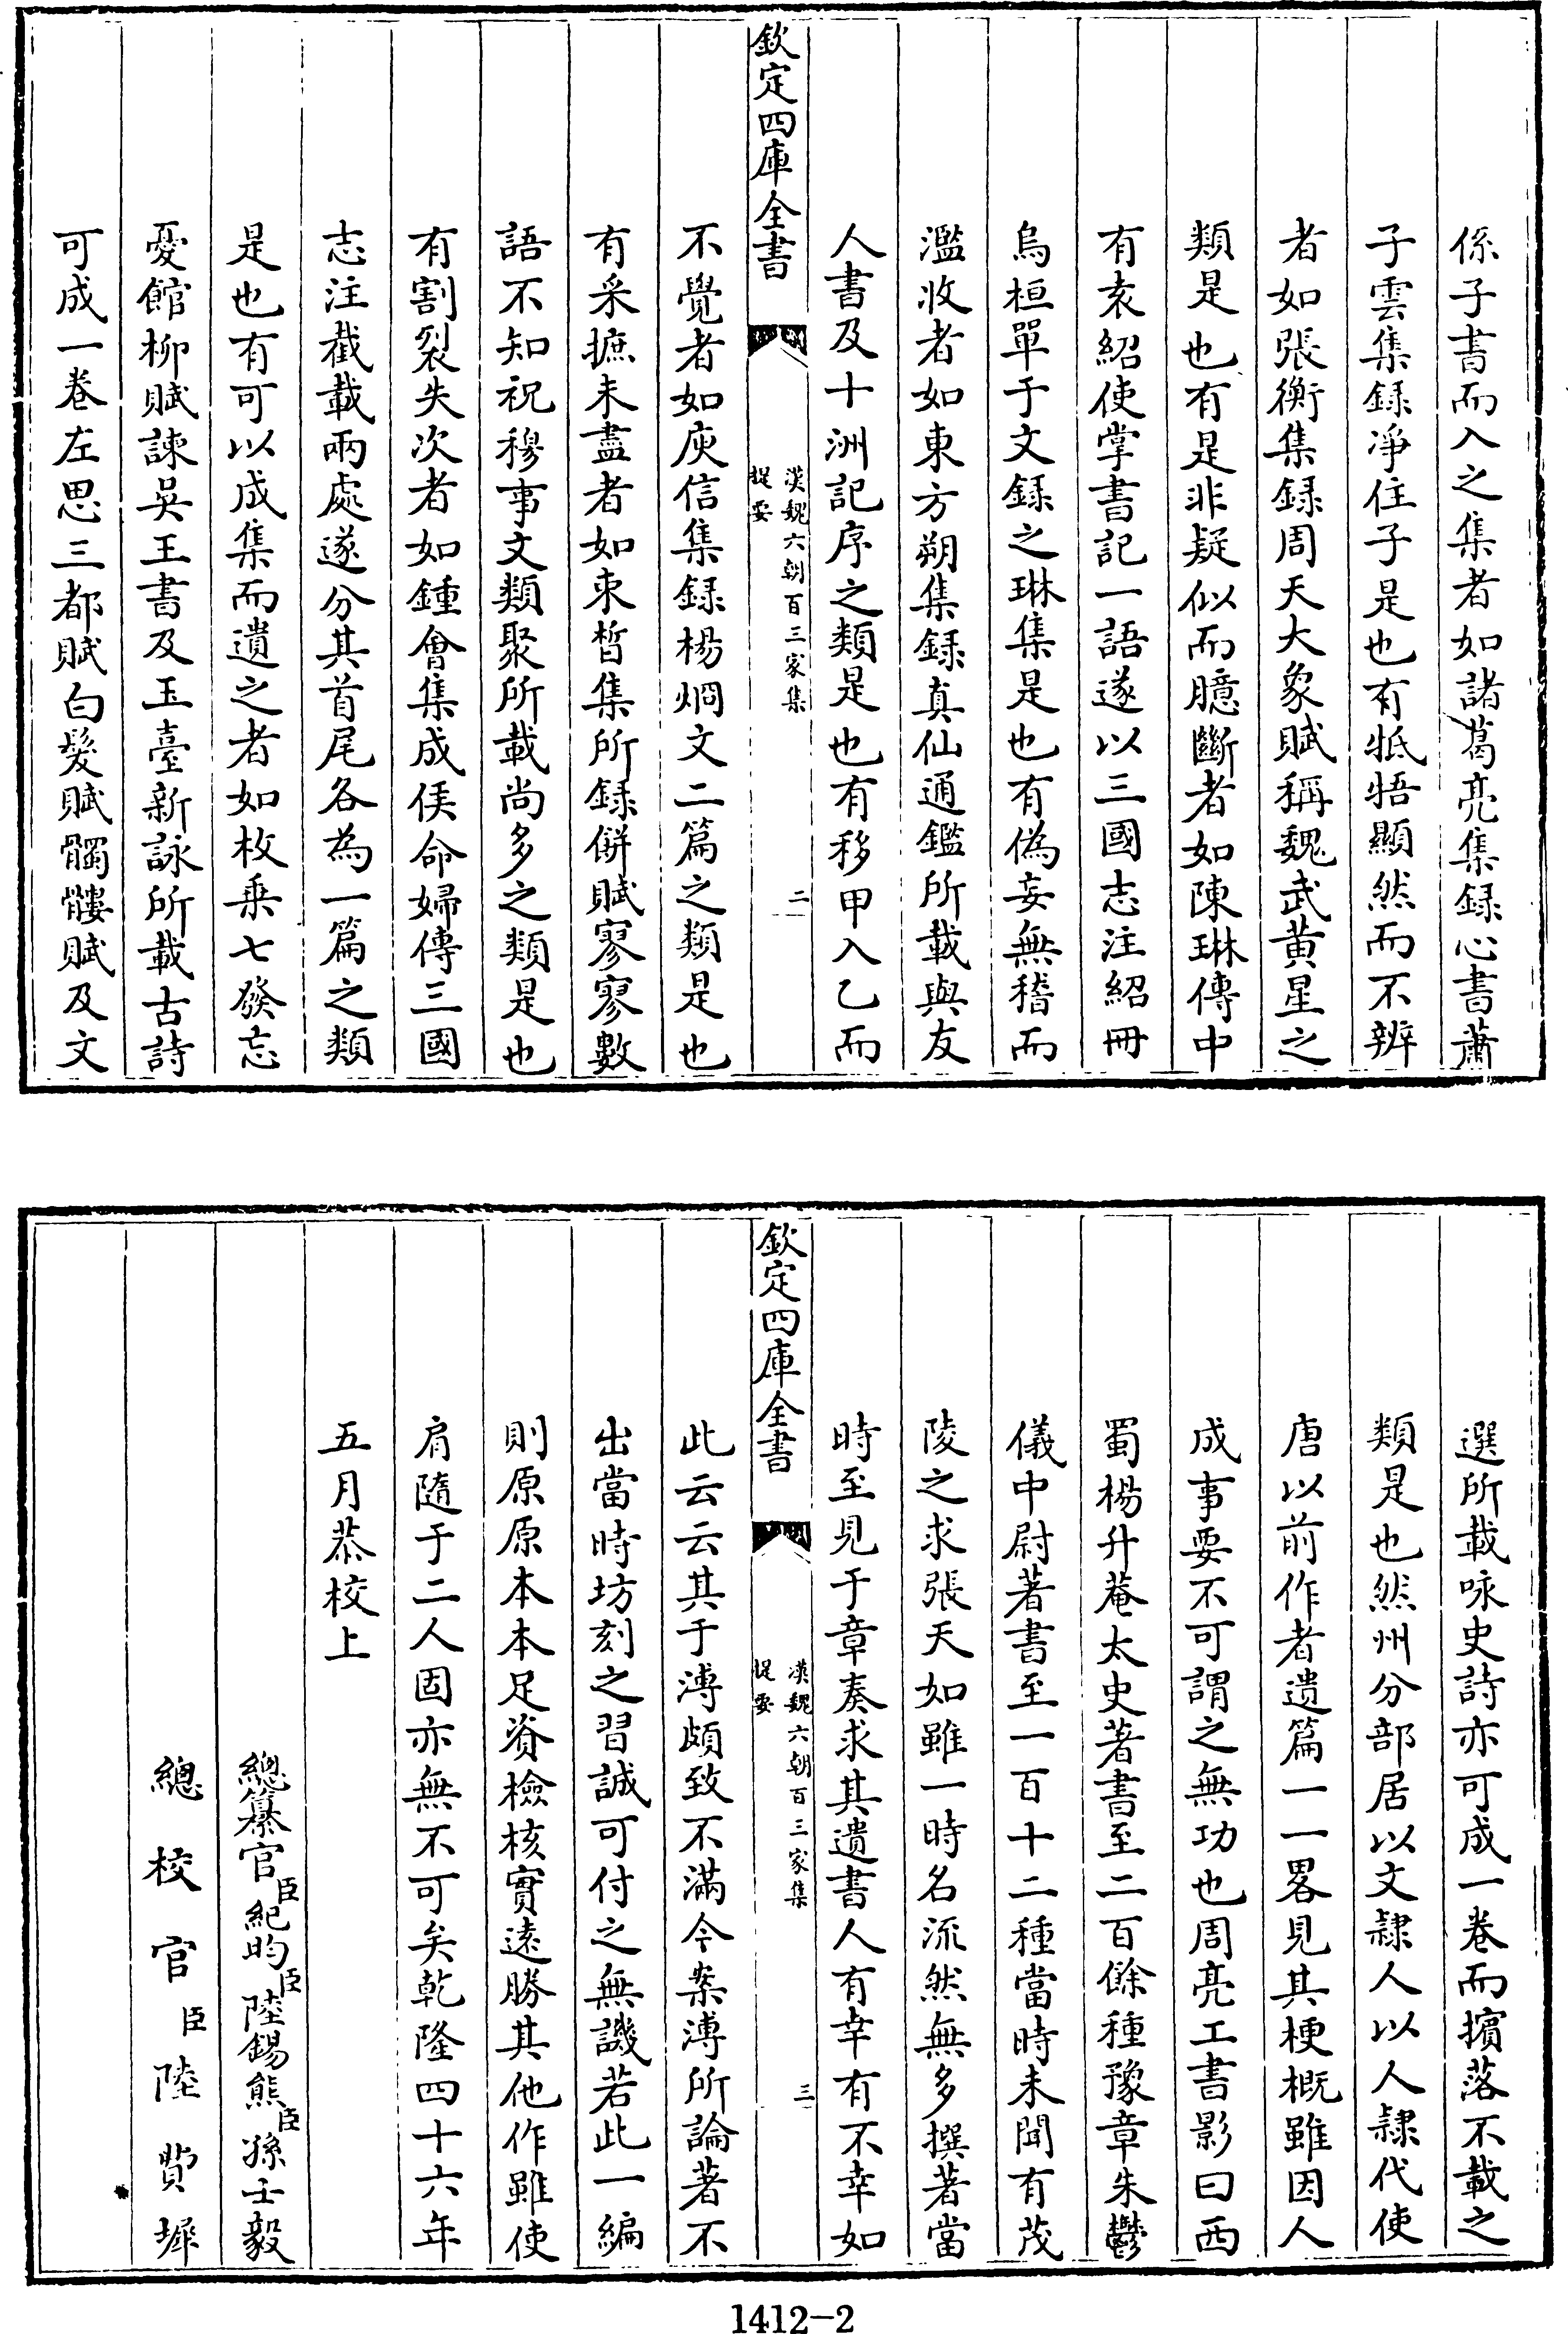 係子書而入之集者如諸葛亮集録心書蕭
子雲集録淨住子是也有牴牾顯然而不辨
者如張衡集録周天大象賦稱魏武黄星之
類是也有是非疑似而臆斷者如陳琳傳中
有袁紹使掌書記一語遂以三國志注紹冊
烏桓單于文録之琳集是也有偽妄無稽而
濫收者如東方朔集録真仙通鑑所載與友
人書及十洲記序之類是也有移甲入乙而
欽定四庫全書
漢魏六朝百三家集
提要
二
不覺者如庾信集録楊烱文二篇之類是也
有采摭未盡者如束晳集所録餅賦寥寥數
語不知祝穆事文類聚所載尚多之類是也
有割裂失次者如鍾會集成侯命婦傳三國
志注截載兩處遂分其首尾各為一篇之類
是也有可以成集而遺之者如枚乗七發忘
憂館柳賦諫吳王書及玉臺新詠所載古詩
可成一卷左思三都賦白髪賦髑髏賦及文
選所載咏史詩亦可成一卷而擯落不載之
類是也然州分部居以文隷人以人隷代使
唐以前作者遺篇一一畧見其梗概雖因人
成事要不可謂之無功也周亮工書影曰西
蜀楊升菴太史著書至二百餘種豫章朱鬱
儀中尉著書至一百十二種當時未聞有茂
陵之求張天如雖一時名流然無多撰著當
時至見于章奏求其遺書人有幸有不幸如
欽定四庫全書
漢魏六朝百三家集
提要
三
此云云其于溥頗致不滿今案溥所論著不
出當時坊刻之習誠可付之無譏若此一編
則原原本本足資檢核實遠勝其他作雖使
肩隨于二人固亦無不可矣乾隆四十六年
五月恭校上
總纂官臣紀昀臣陸錫熊臣孫士毅
總校官臣陸費墀
1412-2